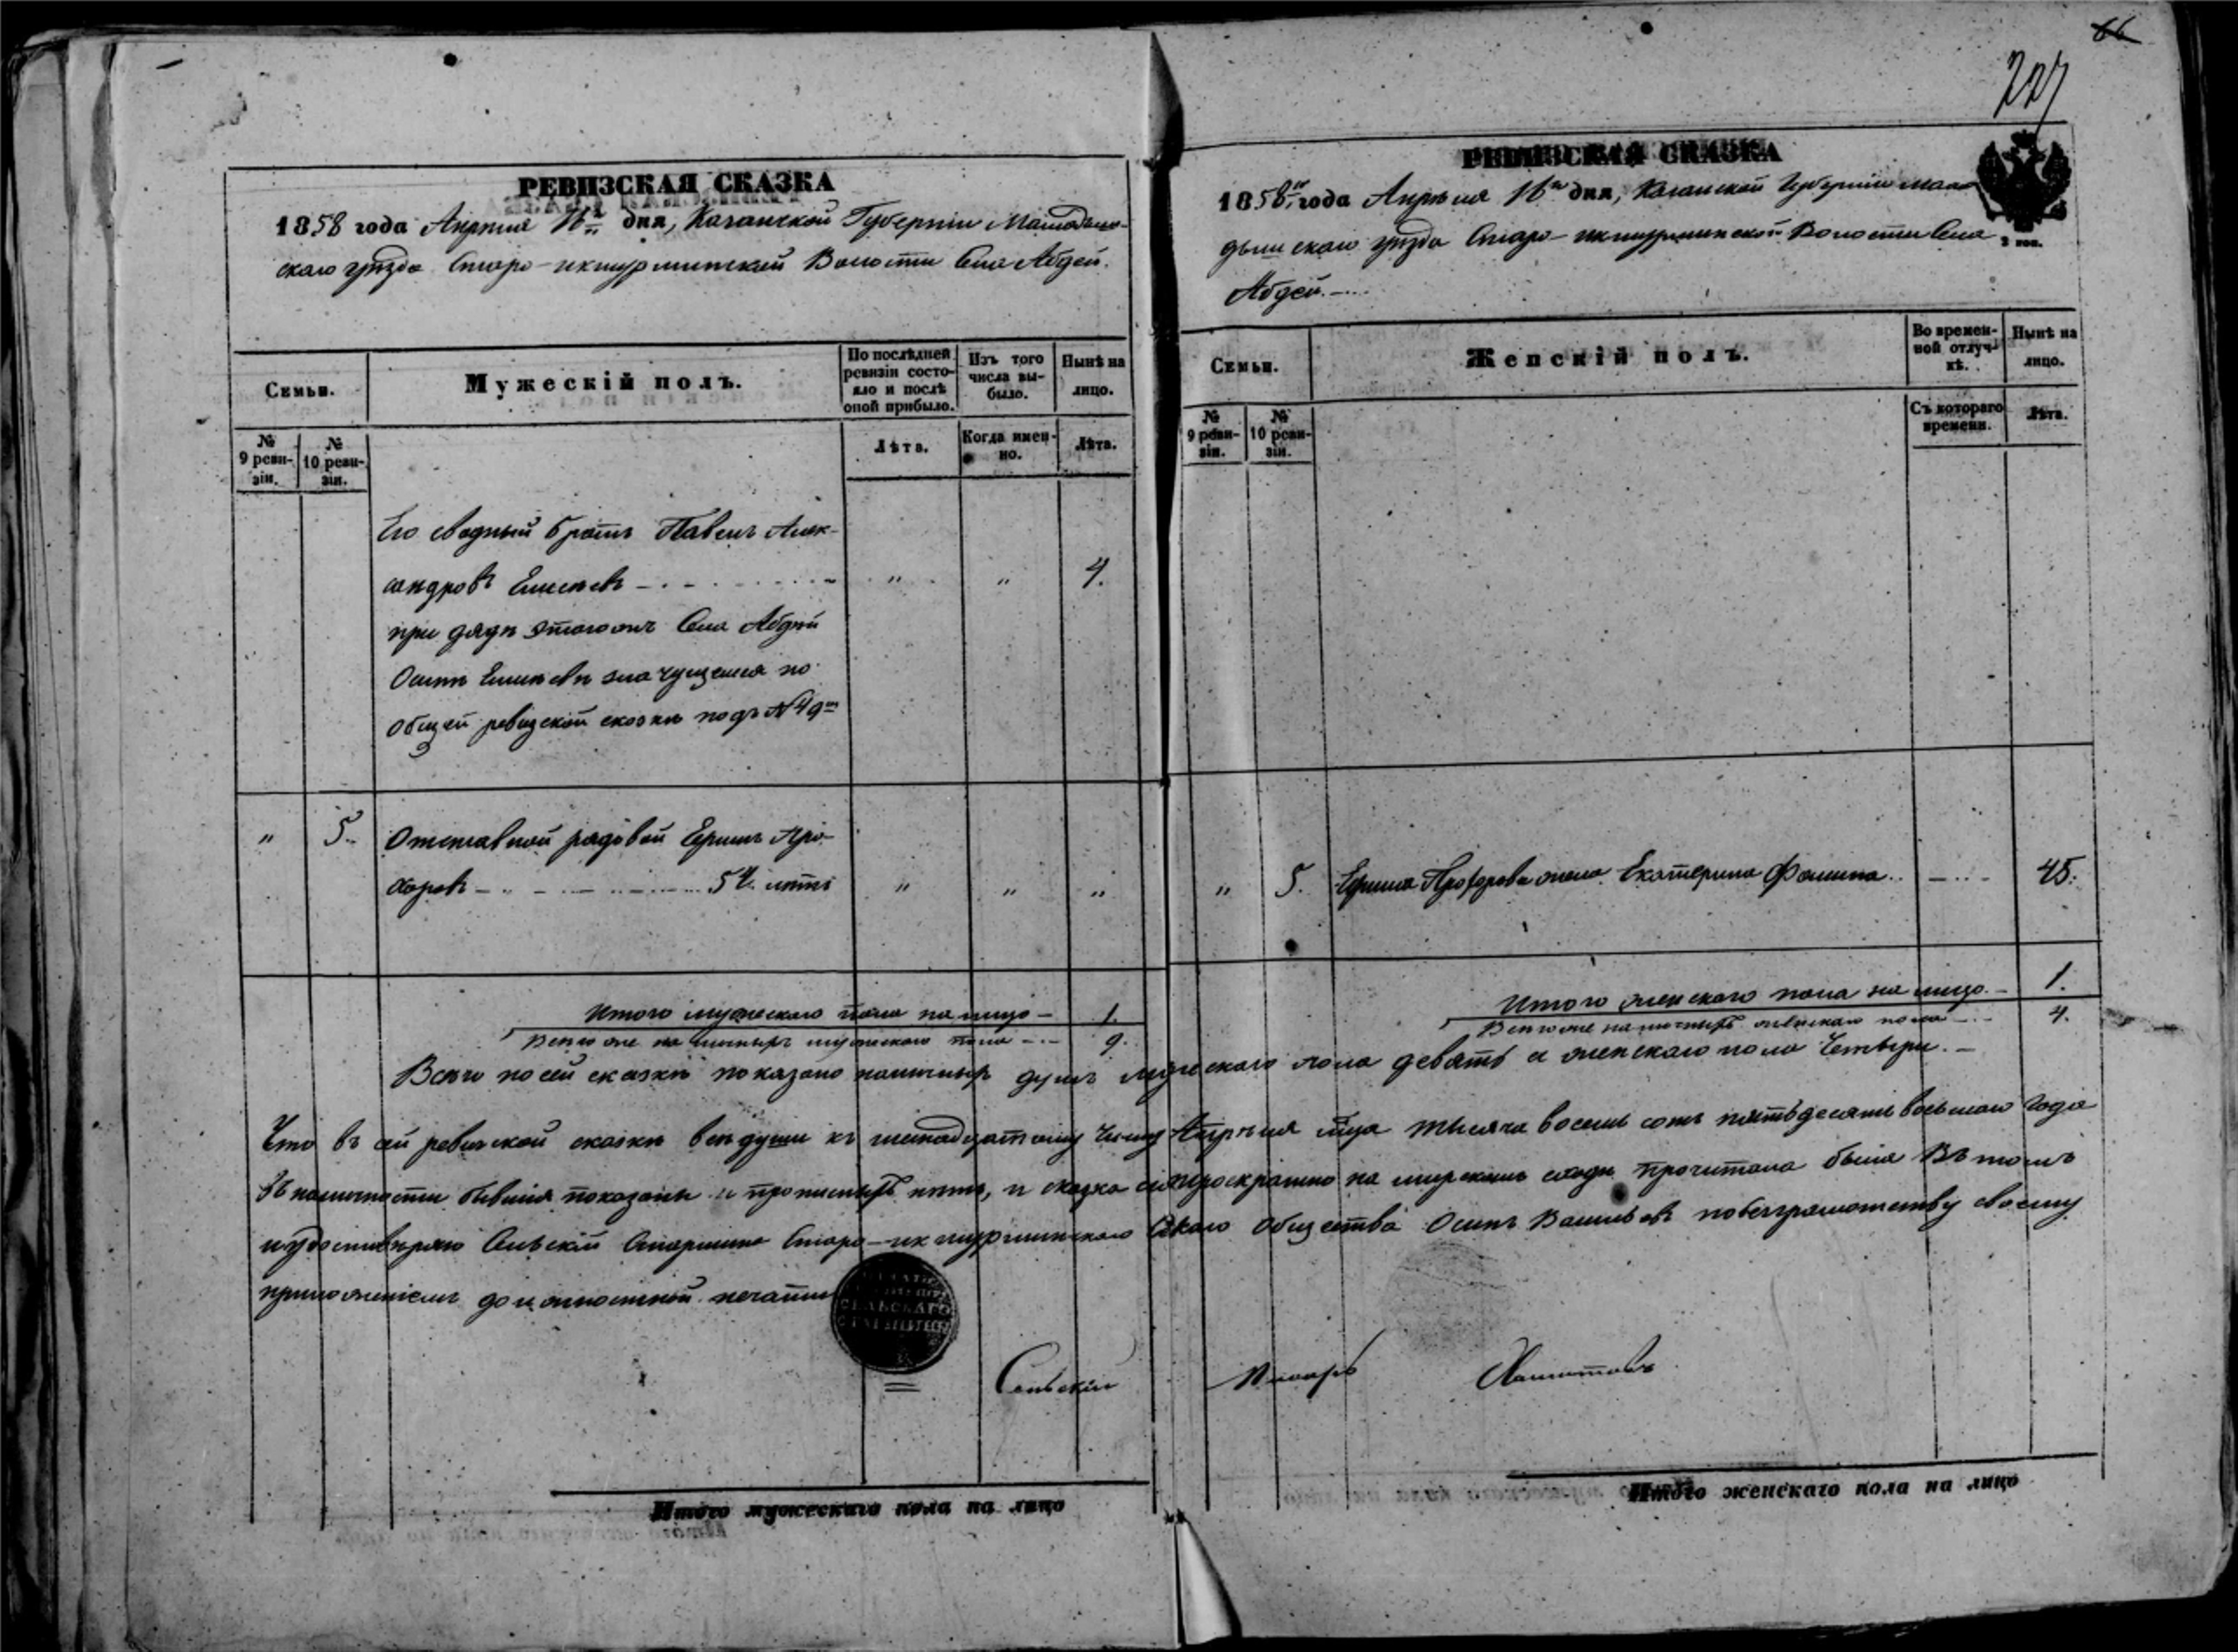 66
227
РЕВИЗСКАЯ СКАЗКА
1858 года Апрѣля 16го дня, Казанской Губерніи Мамадыш-
скаго уѣзда Старо-икшурминской Волости Села Абдей.
Семьи.
Мужескій полъ.
По послѣдней ревизіи состояло и послѣ оной прибыло.
Изъ того числа выбыло.
Нынѣ на лицо.
№ 9 ревизіи.
№ 10 ревизіи.
Лѣта.
Когда именно.
Лѣта.
Его сводный братъ Павелъ Алек-
сандровъ Елисѣевъ - . - " " 4.
при дядѣ Села Абдей
Осипѣ Елисѣевѣ значущемся по
общей ревизской сказкѣ подъ №49м
" 5. Отставной рядовой Ефимъ Про-
хоровъ - 54. лѣтъ " " "
Итого мужескаго пола на лицо - 1.
Всего же на мужескаго пола - 9.
РЕВИЗСКАЯ СКАЗКА
1858го года Апрѣля 16го дня, Казанской Губерніи Мама-
дышскаго уѣзда Старо-икшурминской Волости Села
Абдей. -
2 коп.
Семьи.
Женскій полъ.
Во временной отлучкѣ.
Нынѣ на лицо.
№ 9 ревизіи.
№ 10 ревизіи.
Съ котораго времени.
Лѣта.
" 5. Ефима Прохорова жена Екатерина Фомина. - 45.
Итого женскаго пола на лицо. - 1.
Всего же на женскаго пола - 4.
Всего по сей сказкѣ показано душъ мужескаго пола девять и женскаго пола четыри. -
Что въ сей ревизской сказкѣ всѣ души къ шестнадцатому числу Апрѣля мѣца тысяча восемь сотъ пятьдесятъ восьмаго года
въ наличности бывшія показаны и нѣтъ, и сказка сія на мирскомъ сходѣ прочитана была въ томъ
и удостовѣряю Сельскій Старшина Старо-икшурминскаго Сельскаго общества Осипъ Васильевъ по безграмотству своему
приложеніемъ должностной печати
СЕЛЬСКАГО
Сельскій Писарь
Итого мужескаго пола на лицо
Итого женскаго пола на лицо